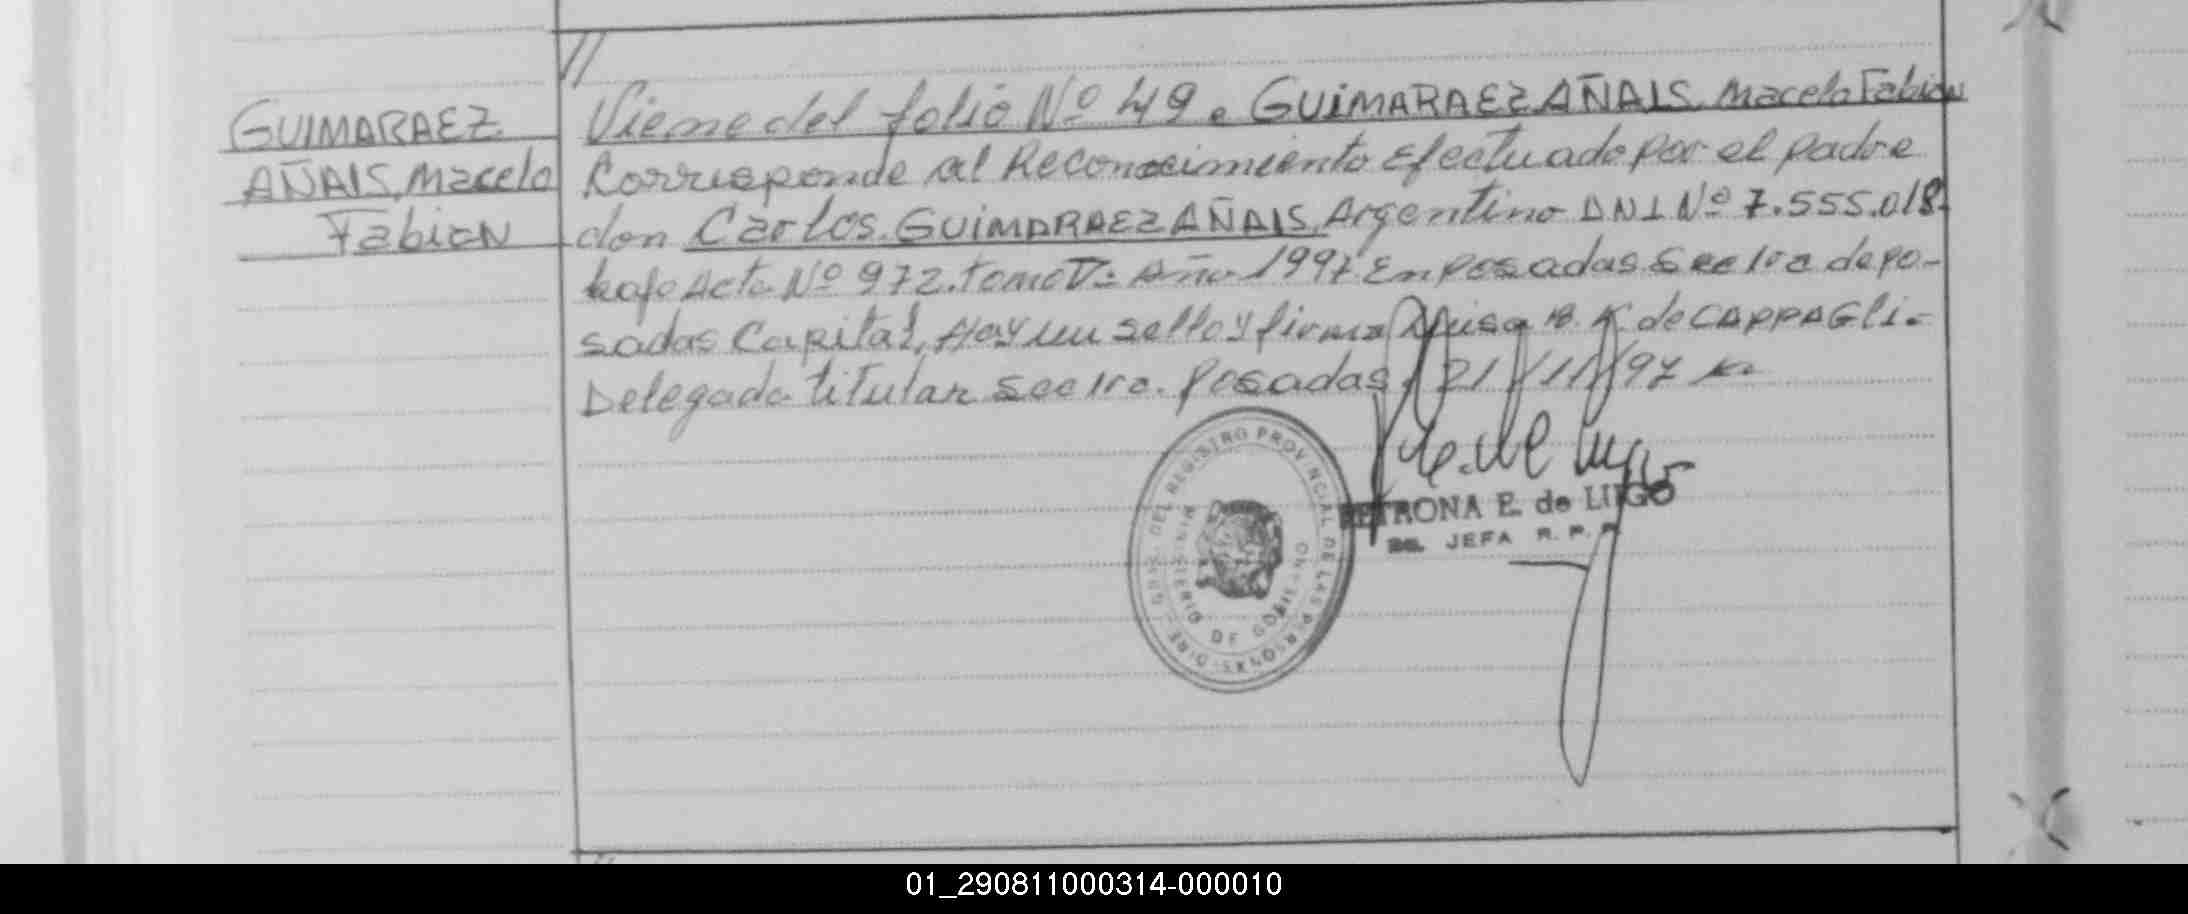 GUIMARAEZ
AÑAIS, Macelo
Fabian
//
Viene del folio Nº 49. GUIMARAEZ AÑAIS, Macelo Fabian
Corresponde al Reconocimiento efectuado por el padre
don Carlos GUIMARAEZ AÑAIS, Argentino DNI Nº 7.555.018-
bajo Acta Nº 972. tomo V- Año 1997 En posadas Secc 1ra de po-
sadas Capital, Hay un sello y firma Luisa B. K de CAPPAGLi-
Delegada titular Secc 1ra. Posadas, 21/11/97
PETRONA E. de LUGO
JEFA R. P. P.
DIRE GRAL DEL REGISTRO PROVINCIAL DE LAS PERSONAS
MINISTERIO DE GOBIERNO
01_290811000314-000010